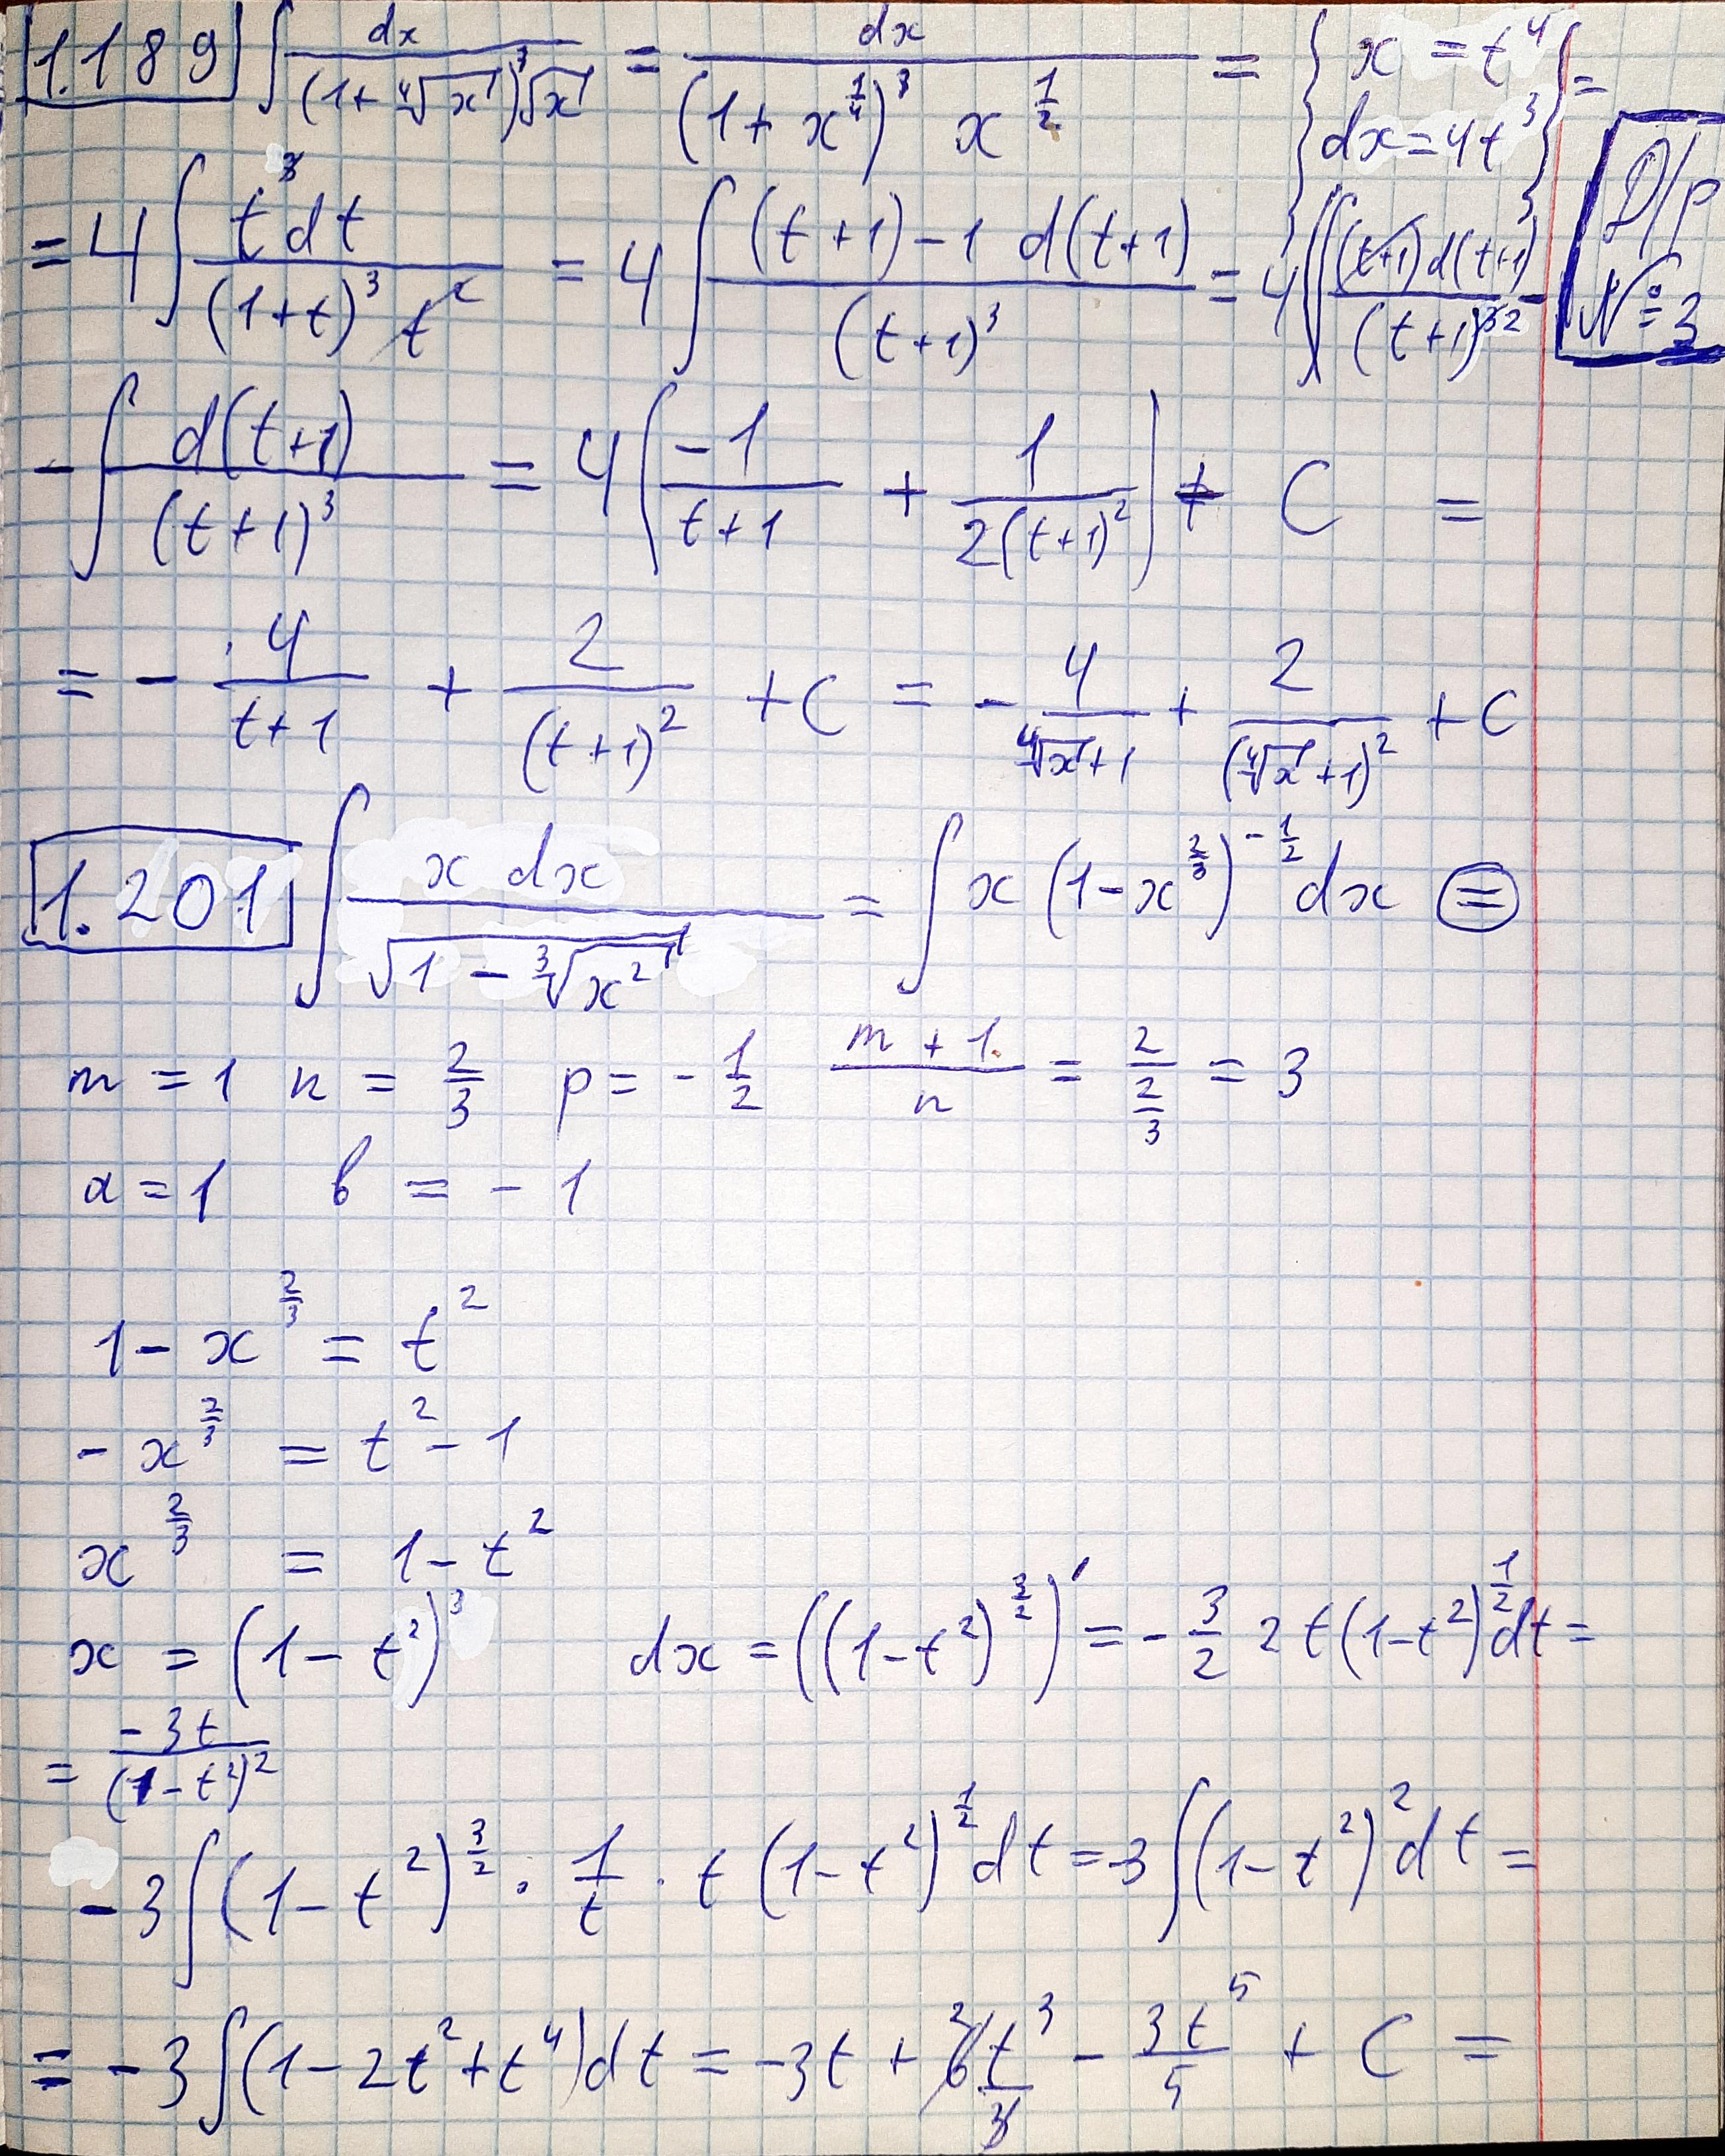 1.189 ∫ dx / ((1+⁴√x)³√x) = dx / ((1+x^(1/4))³ x^(1/2)) = { x = t⁴ } =
{ dx = 4t³ }
Д/р
№3
= 4∫ t³dt / ((1+t)³ t²) = 4∫ (t+1)-1 d(t+1) / (t+1)³ = 4(∫ (t+1)d(t+1) / (t+1)³² -
- ∫ d(t+1) / (t+1)³ = 4( -1/(t+1) + 1/(2(t+1)²) ) + C =
= - 4/(t+1) + 2/(t+1)² + C = - 4/(⁴√x+1) + 2/(⁴√x+1)² + C
1.201 ∫ x dx / √(1-³√x²) = ∫ x (1-x^(2/3))^(-1/2) dx =
m = 1 n = 2/3 p = - 1/2 (m+1)/n = 2/(2/3) = 3
a = 1 b = - 1
1 - x^(2/3) = t²
- x^(2/3) = t² - 1
x^(2/3) = 1 - t²
x = (1 - t²)³ dx = ((1-t²)^(3/2))' = - 3/2 2t(1-t²)^(1/2) dt =
= -3t/(1-t²)²
- 3∫(1-t²)^(3/2) · 1/t · t (1-t²)^(1/2) dt = -3∫(1-t²)² dt =
= -3∫(1-2t²+t⁴)dt = -3t + 6²t³/3 - 3t⁵/5 + C =